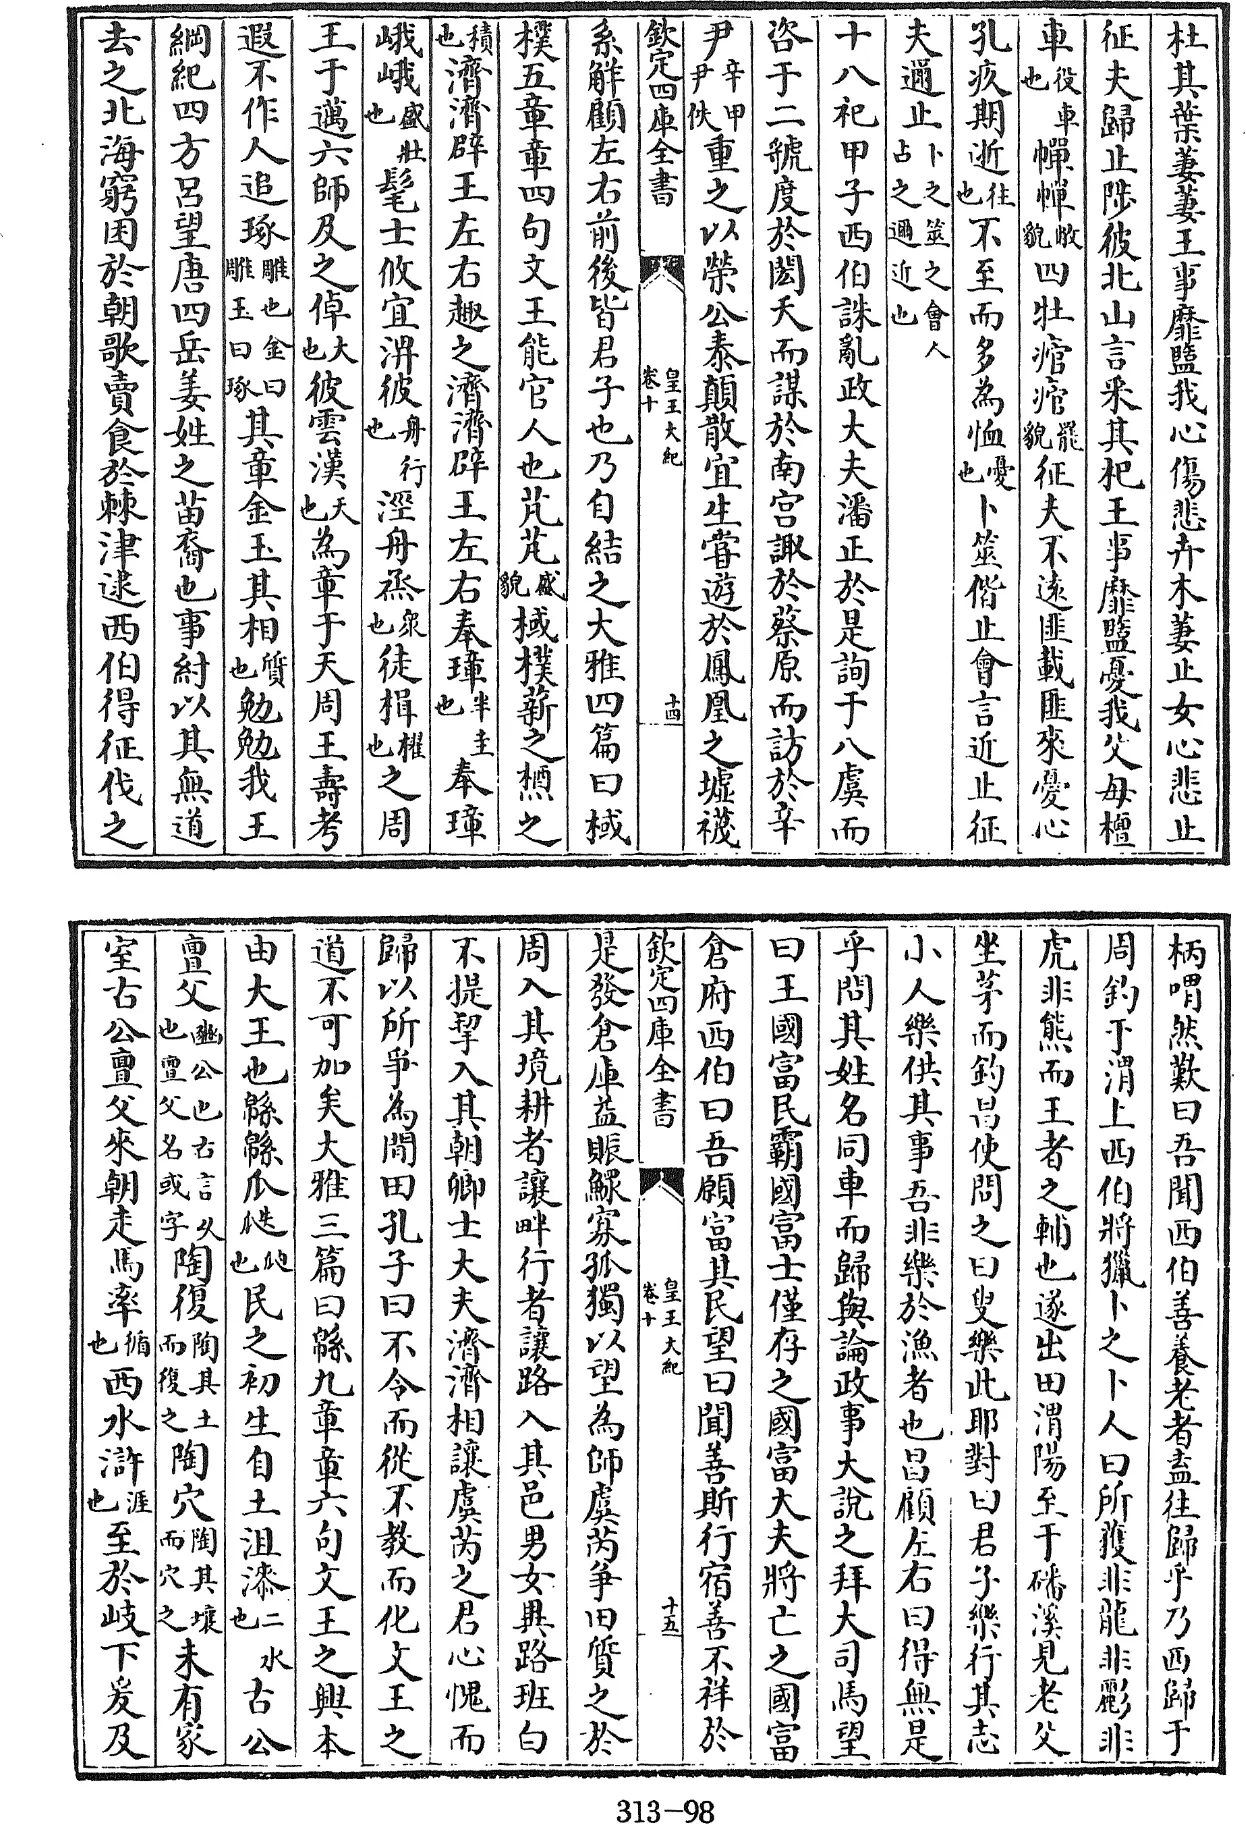 杜其葉萋萋王事靡盬我心傷悲卉木萋止女心悲止
征夫歸止陟彼北山言采其杞王事靡盬憂我父母檀
車役車也幝幝敝貌四牡痯痯罷貌征夫不遠匪載匪來憂心
孔疚期逝往也不至而多為恤憂也卜筮偕止會言近止征
夫邇止卜之筮之會人占之邇近也
十八祀甲子西伯誅亂政大夫潘正於是詢于八虞而
咨于二虢度於閎夭而謀於南宫諏於蔡原而訪於辛
尹辛甲尹佚重之以榮公泰顛散宜生嘗遊於鳳凰之墟襪
欽定四庫全書 皇王大紀卷十 十四
系解顧左右前後皆君子也乃自結之大雅四篇曰棫
樸五章章四句文王能官人也芃芃盛貌棫樸薪之槱之
積也濟濟辟王左右趣之濟濟辟王左右奉璋半圭也奉璋
峨峨盛壯也髦士攸宜淠彼舟行也涇舟烝衆也徒楫櫂也之周
王于邁六師及之倬大也彼雲漢天也為章于天周王壽考
遐不作人追琢雕也金曰雕玉曰琢其章金玉其相質也勉勉我王
綱紀四方呂望唐四岳姜姓之苗裔也事紂以其無道
去之北海窮困於朝歌賣食於棘津逮西伯得征伐之
柄喟然歎曰吾聞西伯善養老者盍往歸乎乃西歸于
周釣于渭上西伯將獵卜之卜人曰所獲非龍非彲非
虎非熊而王者之輔也遂出田渭陽至于磻溪見老父
坐茅而釣昌使問之曰叟樂此耶對曰君子樂行其志
小人樂供其事吾非樂於漁者也昌顧左右曰得無是
乎問其姓名同車而歸與論政事大說之拜大司馬望
曰王國富民霸國富士僅存之國富大夫將亡之國富
倉府西伯曰吾願富其民望曰聞善斯行宿善不祥於
欽定四庫全書 皇王大紀卷十 十五
是發倉庫益賑鰥寡孤獨以望為師虞芮爭田質之於
周入其境耕者讓畔行者讓路入其邑男女異路班白
不提挈入其朝卿士大夫濟濟相讓虞芮之君心愧而
歸以所爭為閒田孔子曰不令而從不教而化文王之
道不可加矣大雅三篇曰緜九章章六句文王之興本
由大王也緜緜瓜瓞瓝也民之初生自土沮漆二水也古公
亶父豳公也古言久也亶父名或字陶復陶其土而復之陶穴陶其壤而穴之未有家
室古公亶父來朝走馬率循也西水滸涯也至於岐下爰及
313-98